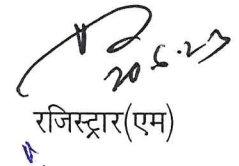 20.6.23
रजिस्ट्रार(एम)